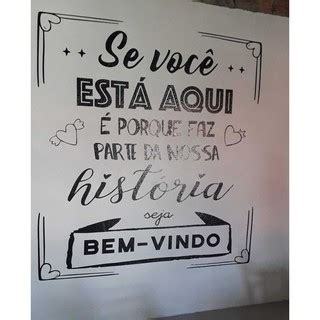 Se você
ESTÁ AQUI
É PORQUE FAZ
PARTE DA NOSSA
história
seja
BEM-VINDO